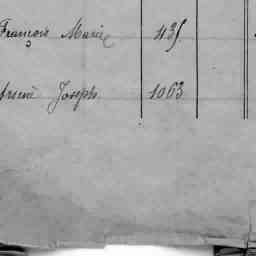 François Marie 435
Joseph 1063